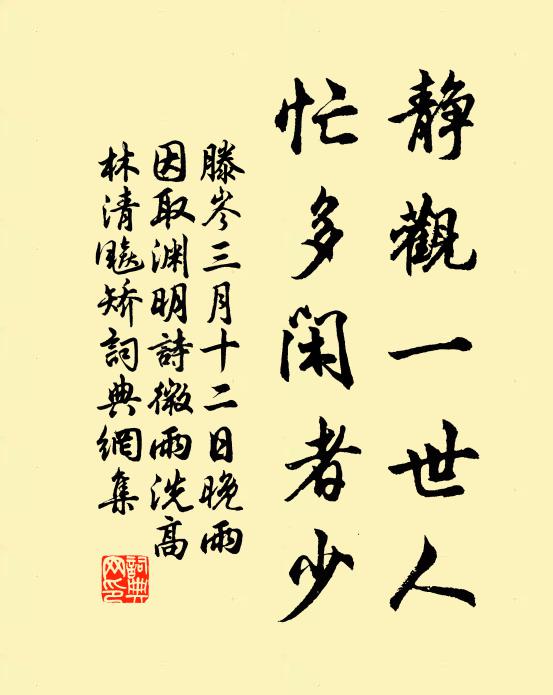 靜觀一世人
忙多閑者少
滕岑三月十二日晚雨
因取渊明詩微雨洗高
林清飈矯詞典網集
詞典
网印